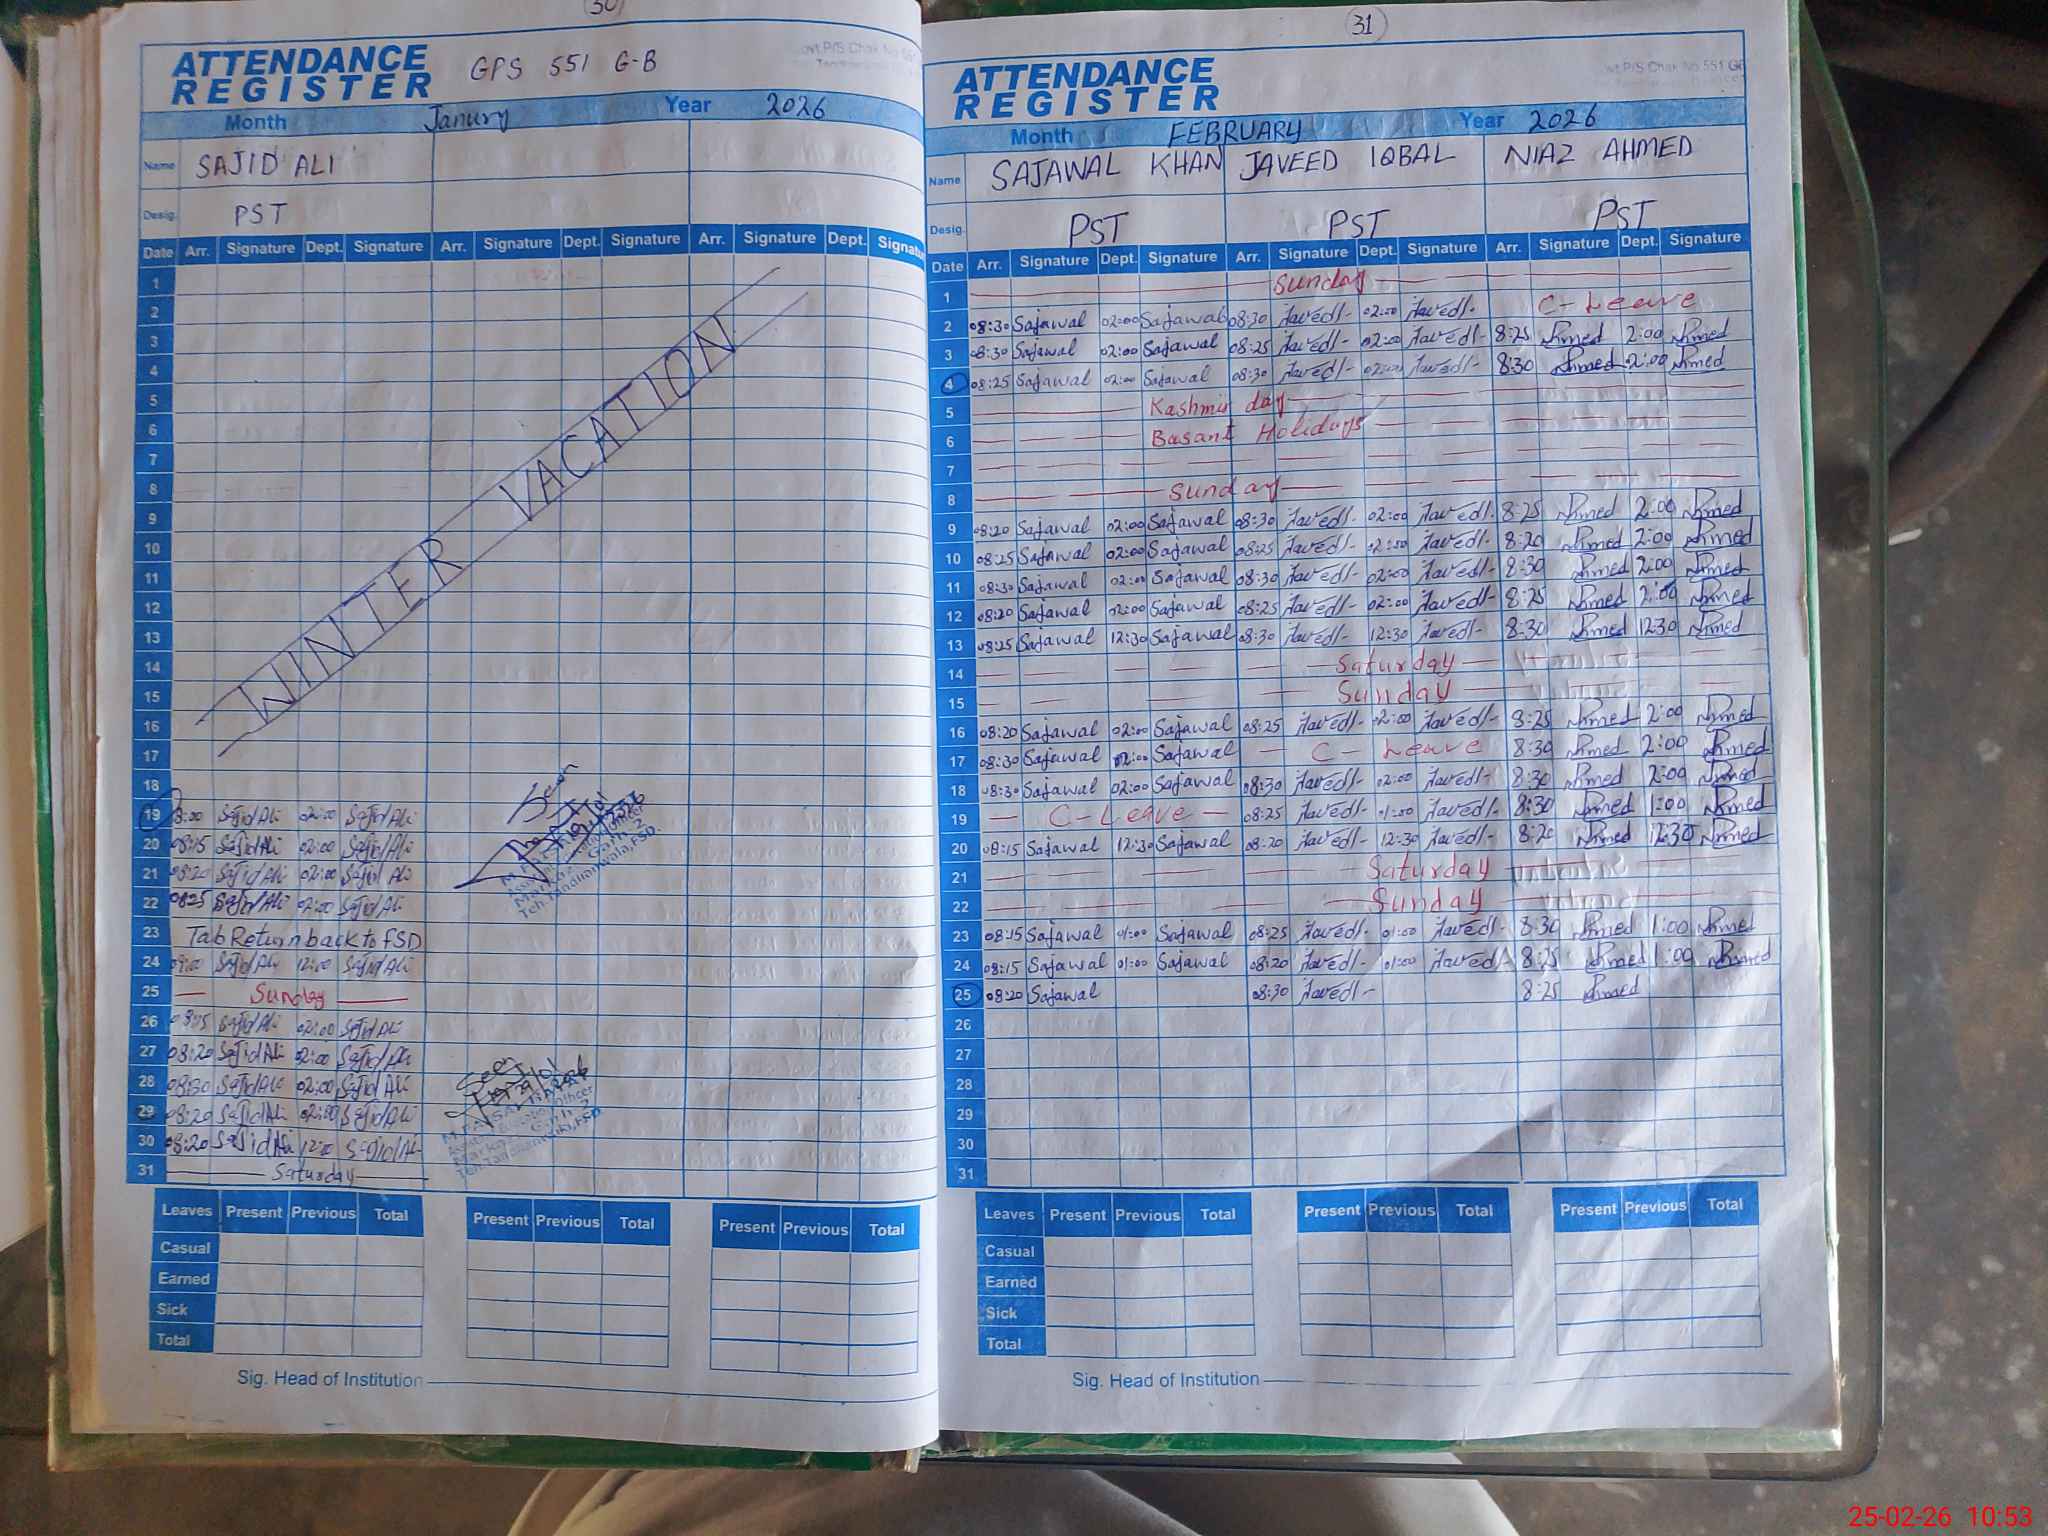 30
ATTENDANCE
REGISTER
GPS 551 G-B
Month Janury Year 2026
Name SAJID ALI
Desig. PST
Date Arr. Signature Dept. Signature Arr. Signature Dept. Signature Arr. Signature Dept. Signature
1
2
3
4
5
6
7
8
9
10
11
12
13
14
15
16
17
18
WINTER VACATION
19 8:00 Sajid Ali 02:00 Sajid Ali
20 08:15 Sajid Ali 02:00 Sajid Ali
21 08:20 Sajid Ali 02:00 Sajid Ali
22 0825 Sajid Ali 02:00 Sajid Ali
23 Tab Return back to FSD
24 09:00 Sajid Ali 12:00 Sajid Ali
25 Sunday
26 08:15 Sajid Ali 02:00 Sajid Ali
27 08:20 Sajid Ali 02:00 Sajid Ali
28 08:30 Sajid Ali 02:00 Sajid Ali
29 08:20 Sajid Ali 02:00 Sajid Ali
30 08:20 Sajid Ali 12:00 Sajid Ali
31 Saturday
Seen
Teh.Tandlianwala,FSD.
Seen
Leaves Present Previous Total Present Previous Total Present Previous Total
Casual
Earned
Sick
Total
Sig. Head of Institution
31
ATTENDANCE
REGISTER
vt.P/S Chak No.551 GB
Month FEBRUARY Year 2026
Name SAJAWAL KHAN JAVEED IQBAL NIAZ AHMED
Desig. PST PST PST
Date Arr. Signature Dept. Signature Arr. Signature Dept. Signature Arr. Signature Dept. Signature
1 Sunday
2 08:30 Sajawal 02:00 Sajawal 08:30 Javed 02:00 Javed C-Leave
3 08:30 Sajawal 02:00 Sajawal 08:25 Javed 02:00 Javed 8:25 Ahmed 2:00 Ahmed
4 08:25 Sajawal 02:00 Sajawal 08:30 Javed 02:00 Javed 8:30 Ahmed 2:00 Ahmed
5 Kashmir day
6 Basant Holidays
7
8 Sunday
9 08:20 Sajawal 02:00 Sajawal 08:30 Javed 02:00 Javed 8:25 Ahmed 2:00 Ahmed
10 08:25 Sajawal 02:00 Sajawal 08:25 Javed 02:00 Javed 8:20 Ahmed 2:00 Ahmed
11 08:30 Sajawal 02:00 Sajawal 08:30 Javed 02:00 Javed 8:30 Ahmed 2:00 Ahmed
12 08:20 Sajawal 02:00 Sajawal 08:25 Javed 02:00 Javed 8:25 Ahmed 2:00 Ahmed
13 08:25 Sajawal 12:30 Sajawal 08:30 Javed 12:30 Javed 8:30 Ahmed 1230 Ahmed
14 Saturday
15 Sunday
16 08:20 Sajawal 02:00 Sajawal 08:25 Javed 2:00 Javed 8:25 Ahmed 2:00 Ahmed
17 08:30 Sajawal 02:00 Sajawal C-Leave 8:30 Ahmed 2:00 Ahmed
18 08:30 Sajawal 02:00 Sajawal 08:30 Javed 02:00 Javed 8:30 Ahmed 2:00 Ahmed
19 C-Leave 08:25 Javed 01:00 Javed 8:30 Ahmed 1:00 Ahmed
20 08:15 Sajawal 12:30 Sajawal 08:20 Javed 12:30 Javed 8:20 Ahmed 12:30 Ahmed
21 Saturday
22 Sunday
23 08:15 Sajawal 01:00 Sajawal 08:25 Javed 01:00 Javed 8:30 Ahmed 1:00 Ahmed
24 08:15 Sajawal 01:00 Sajawal 08:20 Javed 01:00 Javed 8:25 Ahmed 1:00 Ahmed
25 08:20 Sajawal 08:30 Javed 8:25 Ahmed
26
27
28
29
30
31
Leaves Present Previous Total Present Previous Total Present Previous Total
Casual
Earned
Sick
Total
Sig. Head of Institution
25-02-26 10:53